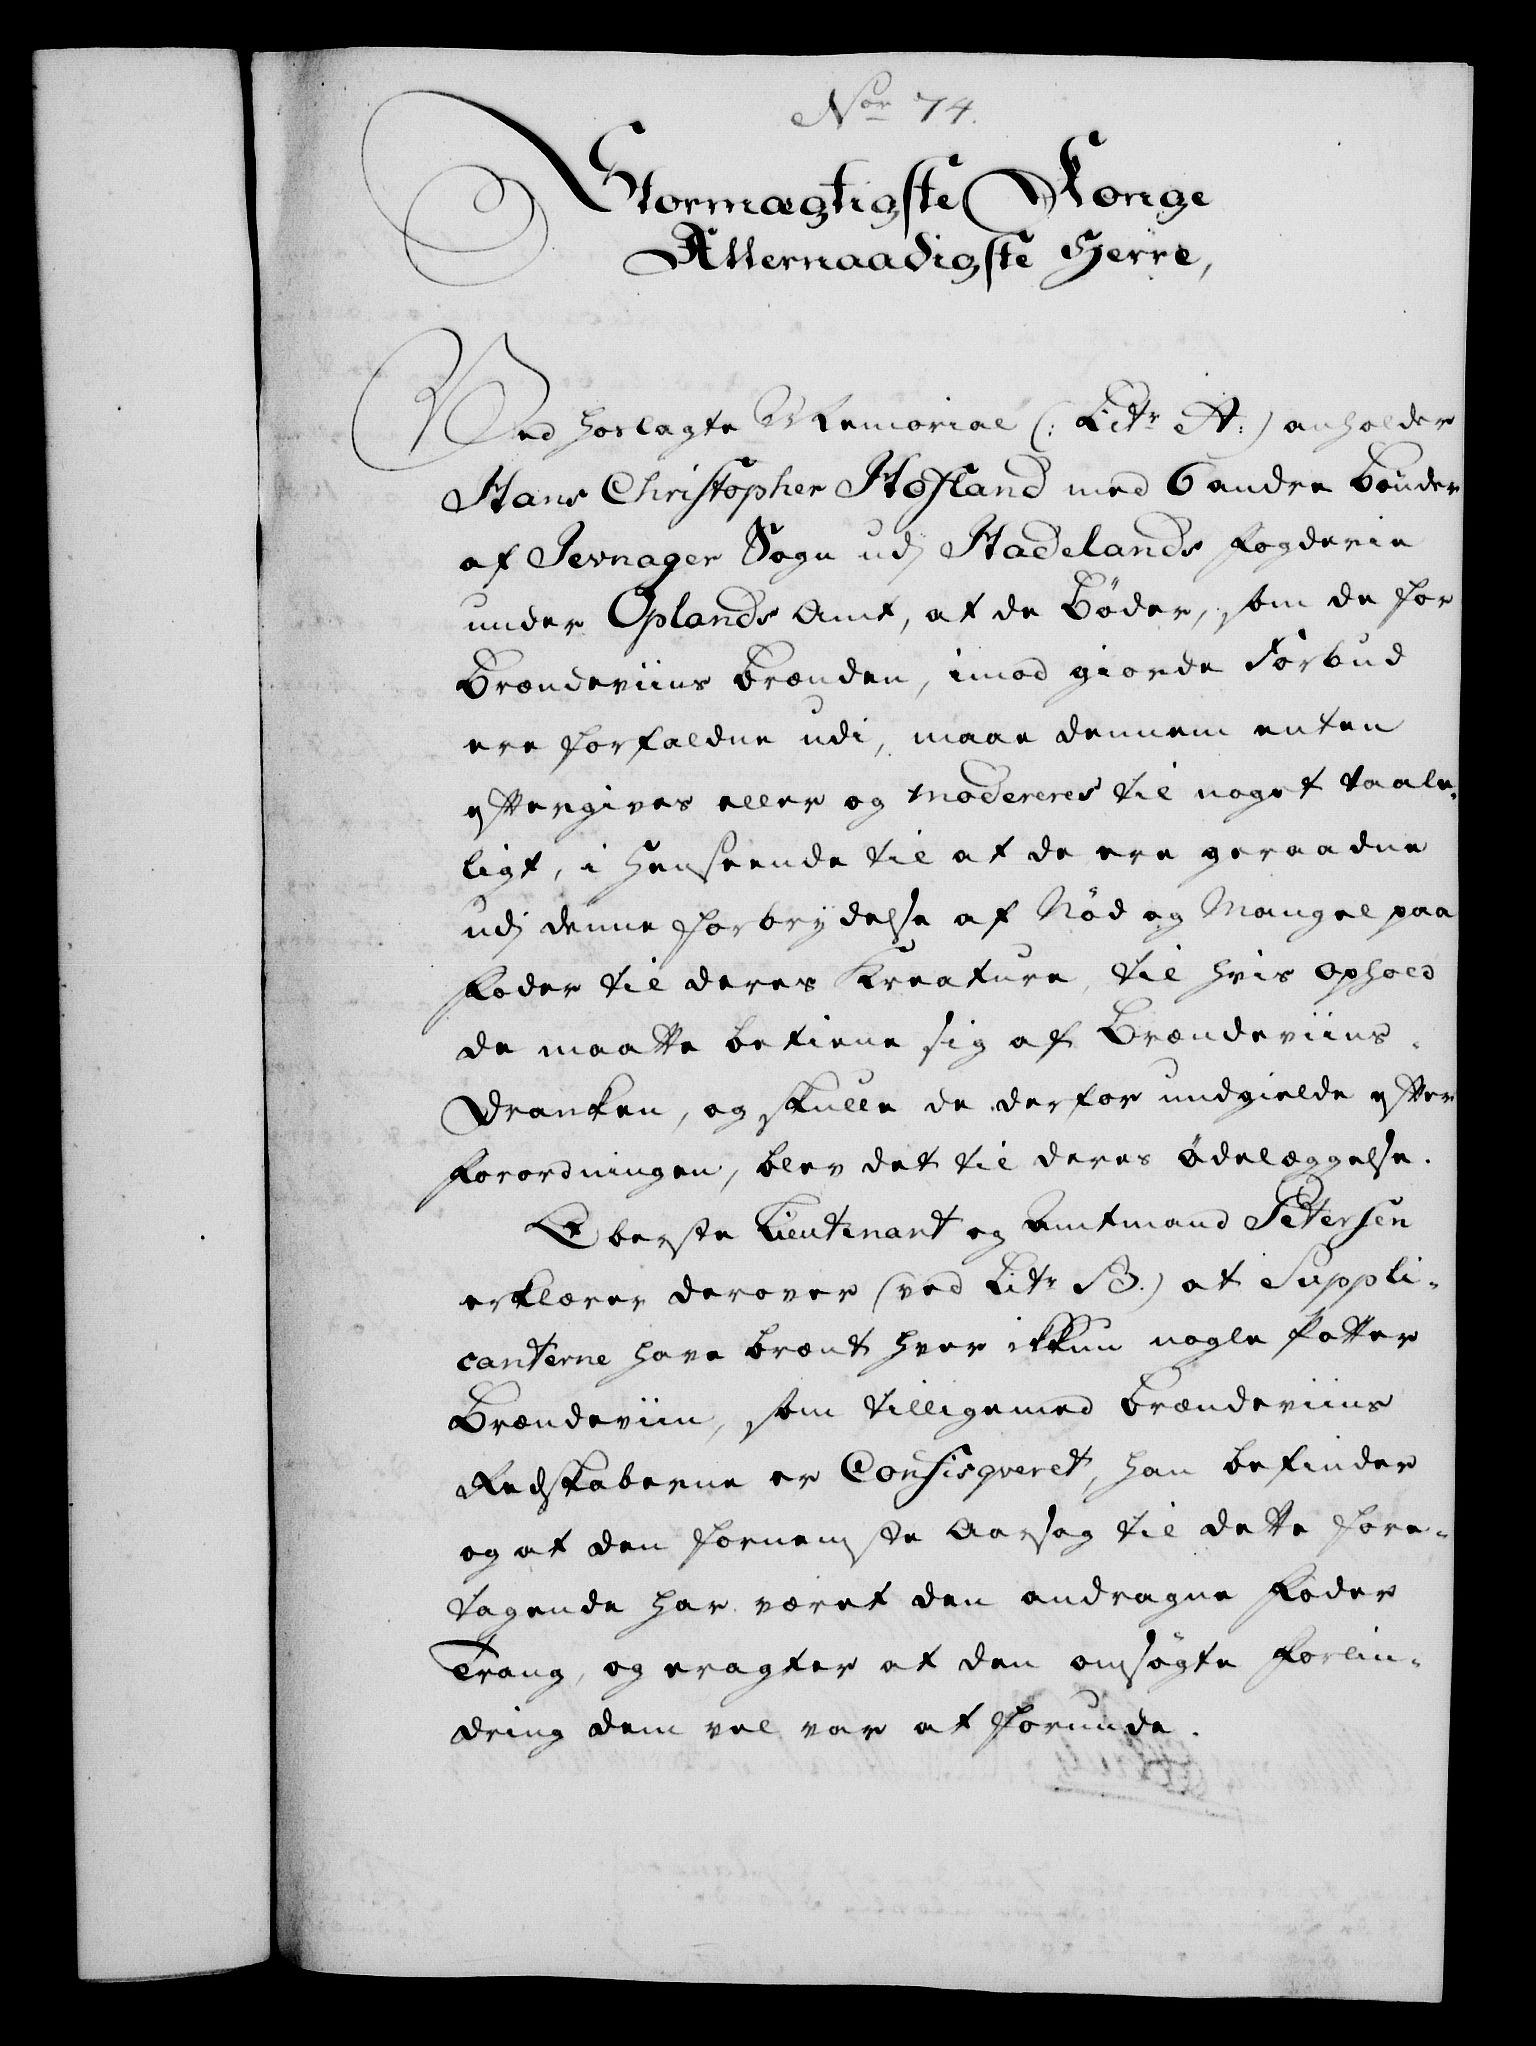 Nor 74.
Stormægtigste Konge
Allernaadigste Herre,
Ved hoslagte Memorial (: Litr A:) anholder
Hans Christopher Hofland med 6 andre Bønder
af Jevnager Sogn udj Hadelands Fogderie
under Oplands Amt, at de Bøder, som de for
Brændeviins Brænden, imod giorde Forbud
ere forfaldne udi, maae dennem enten
eftergives eller og modereres til noget taale-
ligt, i Henseende til at de ere geraadne
udj denne Forbrydelse af Nød og Mangel paa
Foder til deres Kreature, til hvis Ophold
de maatte betiene sig af Brændeviins-
Dranken, og skulle de derfor undgielde efter
Forordningen, blev det til deres ødelæggelse.
Oberste Lieutenant og Amtmand Petersen
erklærer derover (ved Litr B.) at Suppli-
canterne have brændt hver ikkun nogle Potter
Brændeviin, som tilligemed Brændeviins
Redskaberne er Confisqveret, han befinder
og at den fornemste Aarsag til dette Fore-
tagende har været den andragne Foder
Trang, og eragter at den omsøgte Forlin-
dring dem vel var at forunde.